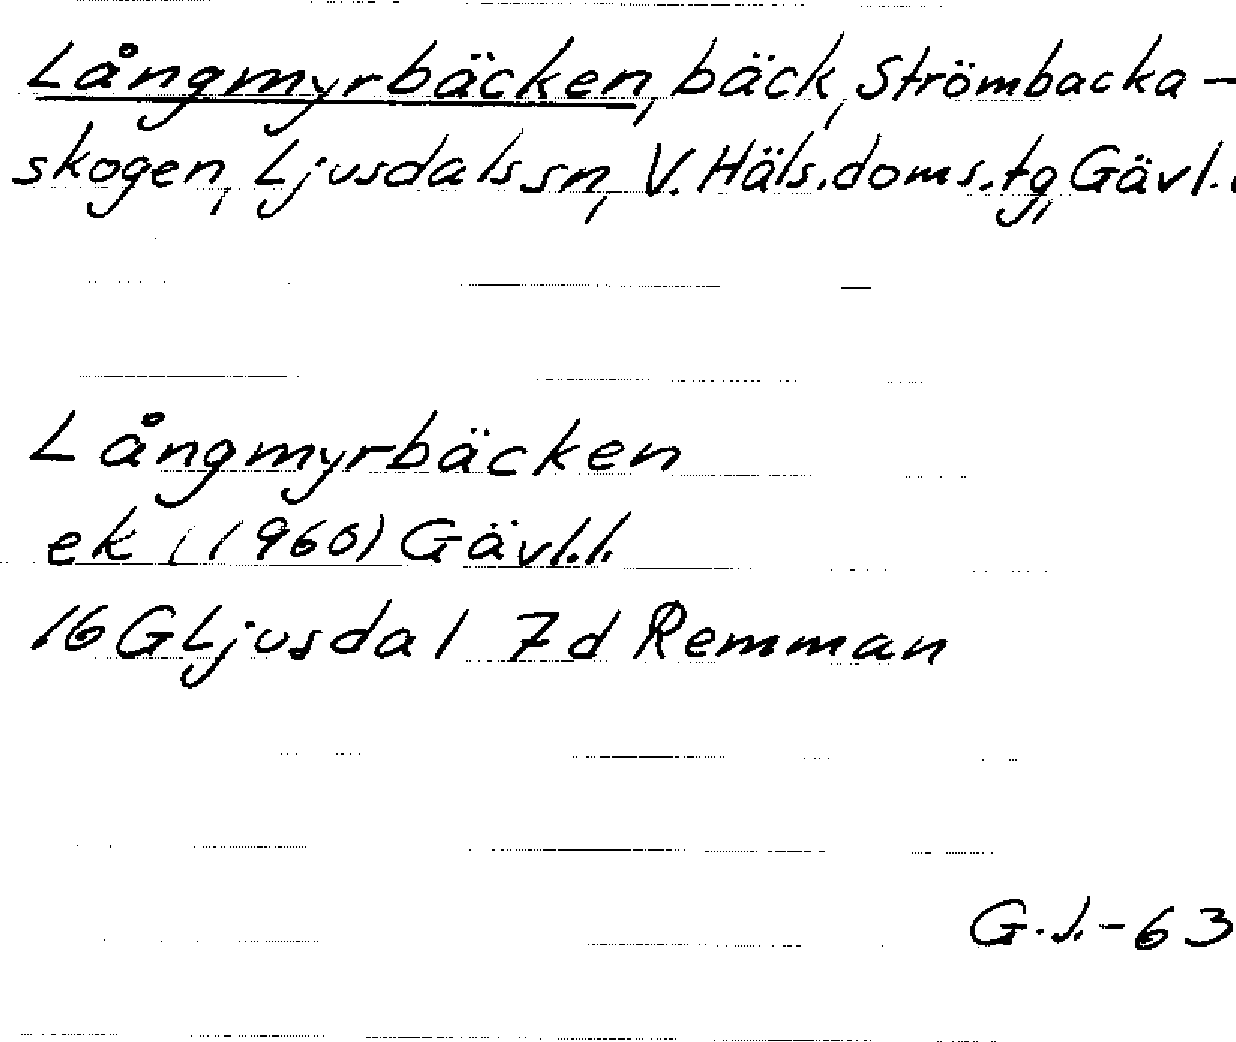 Långmyrbäcken, bäck, Strömbacka-
skogen, Ljusdals sn, V. Häls. doms. tg, Gävl.
Långmyrbäcken
ek (1960) Gävl.l.
16G Ljusdal 7d Remman
G.J.-63